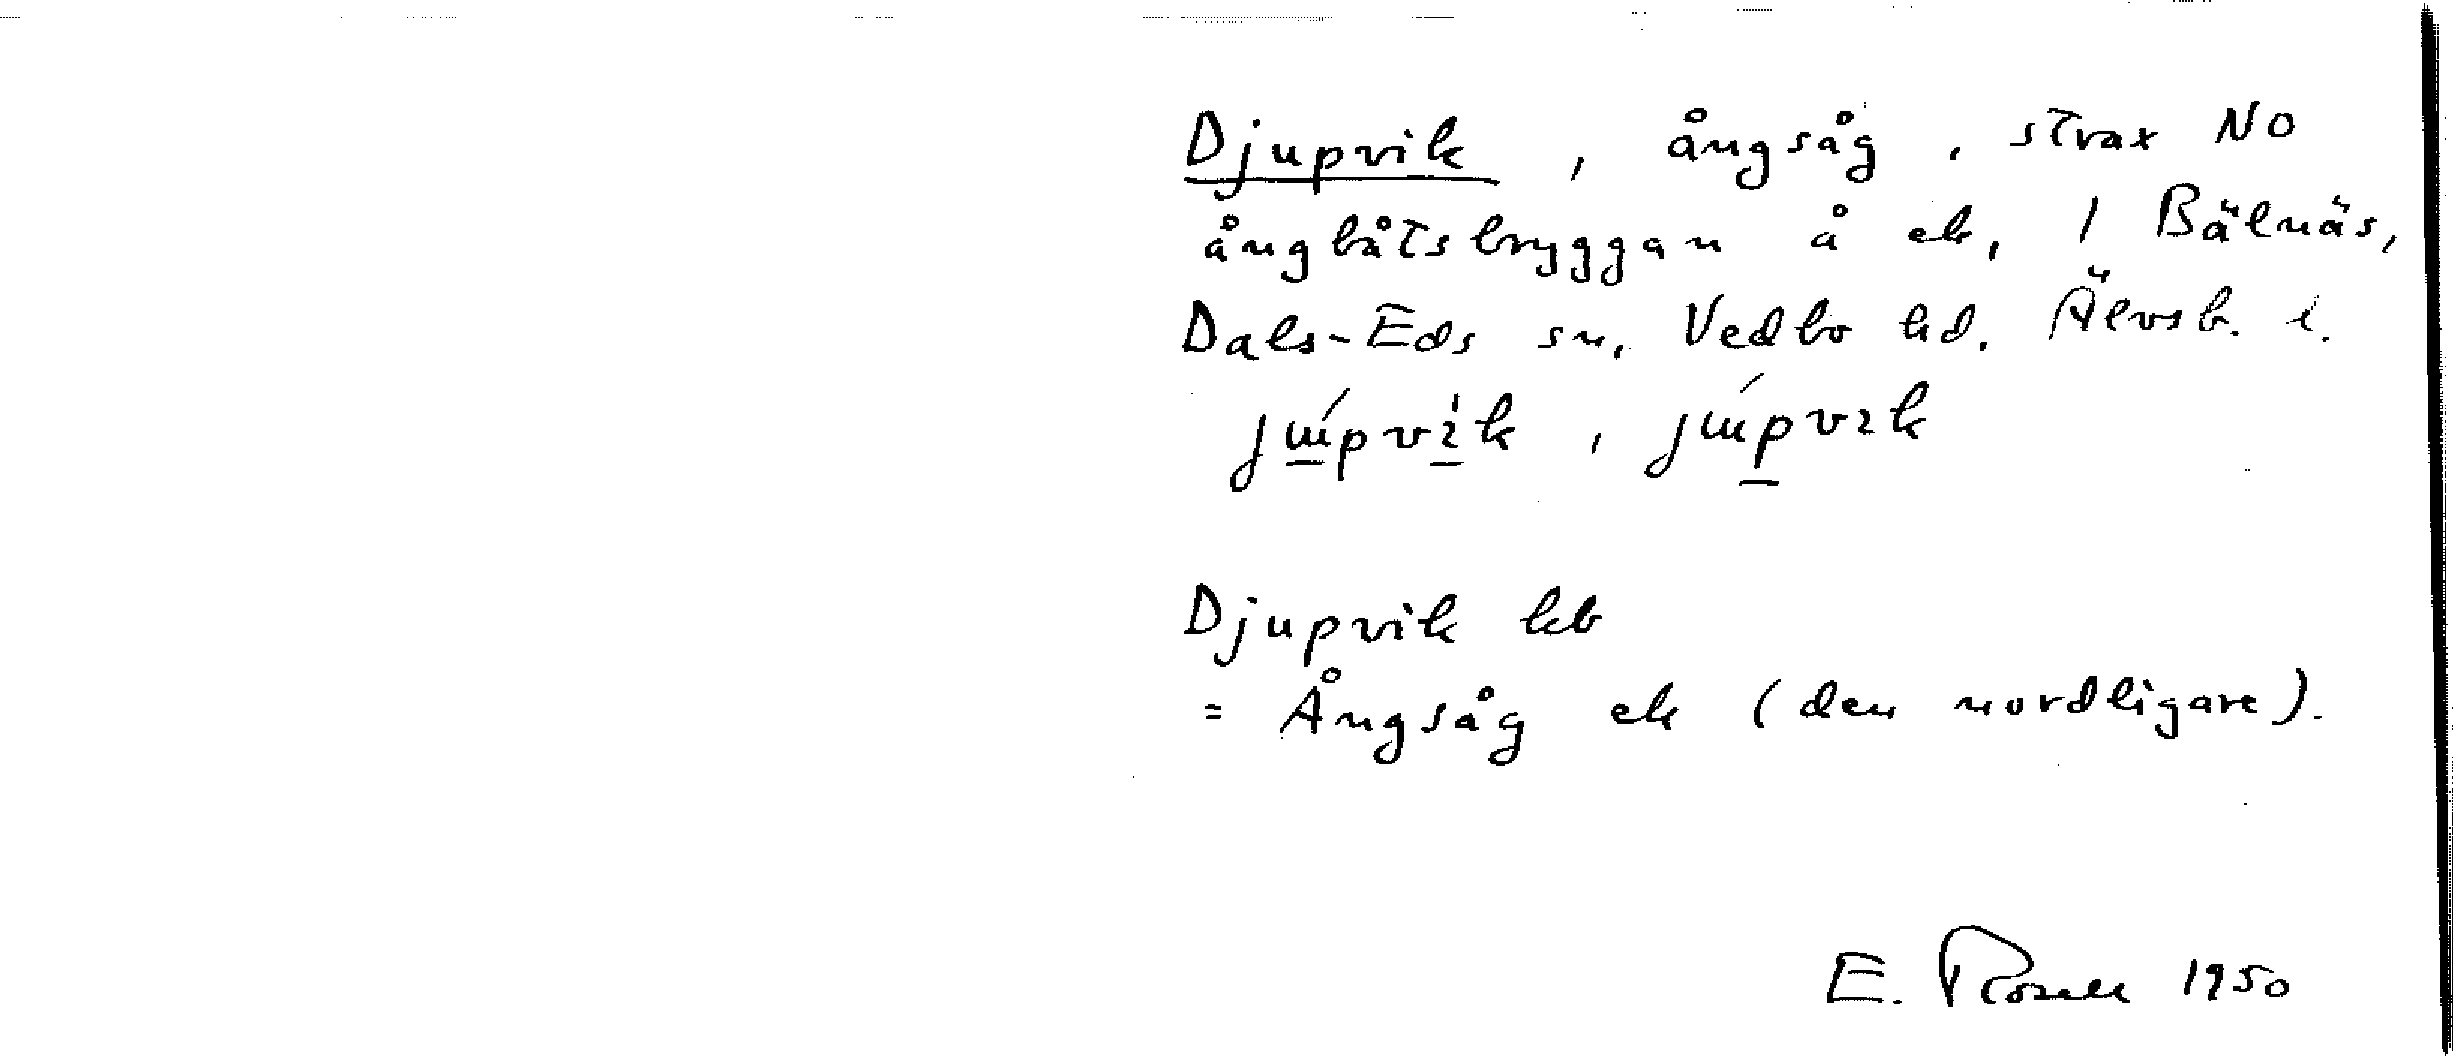 Djupvik, ångsåg, strax NO
ångbåtsbryggan å ek, 1 Bälnäs,
Dals-Eds sn, Vedbo hd. Älvsb. l.
Djupvik kb
= Ångsåg ek (den nordligare).
E. Rosell 1950